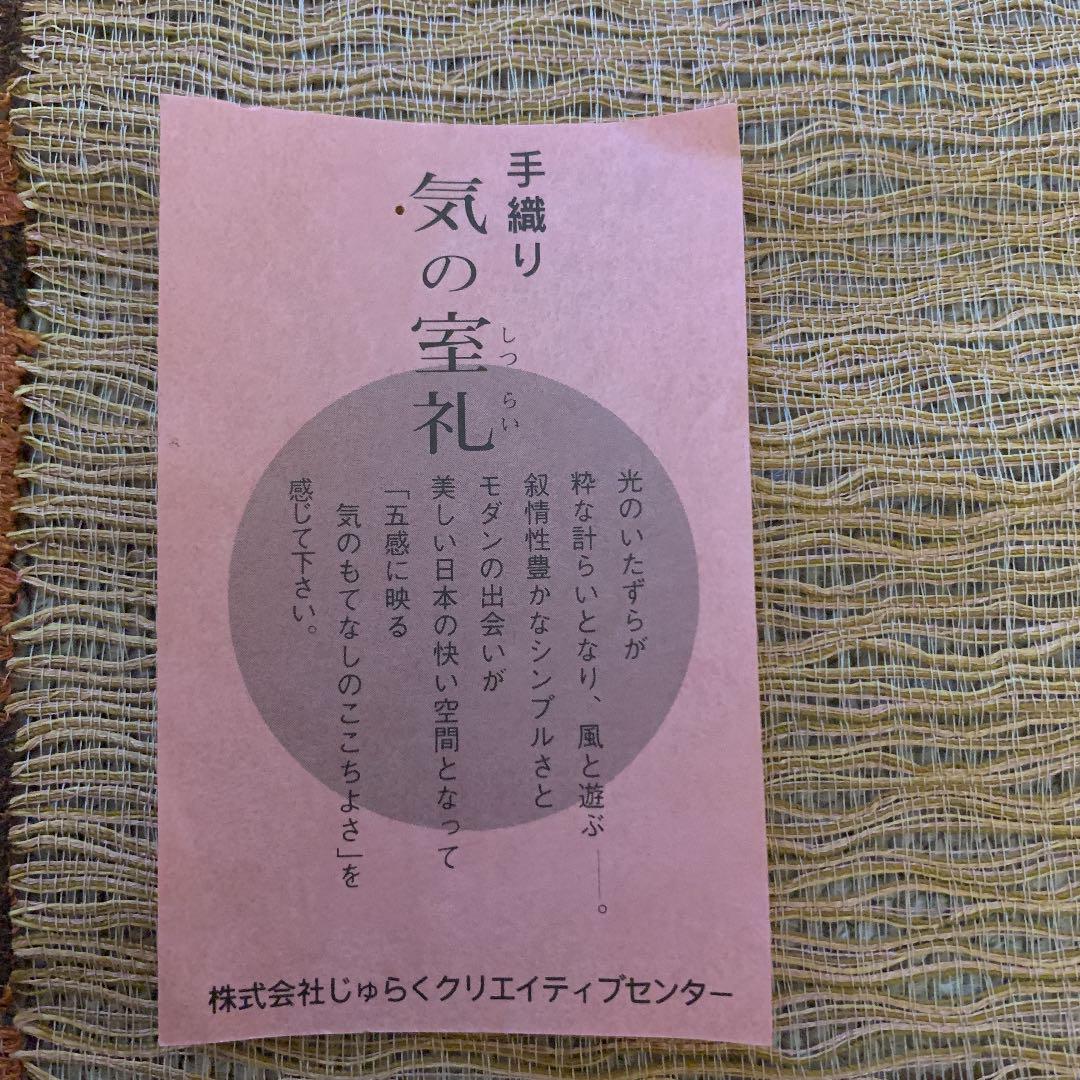 手織り
気の室礼
しつらい
光のいたずらが
粋な計らいとなり、風と遊ぶ――。
叙情性豊かなシンプルさと
モダンの出会いが
美しい日本の快い空間となって
「五感に映る
気のもてなしのここちよさ」を
感じて下さい。
株式会社じゅらくクリエイティブセンター